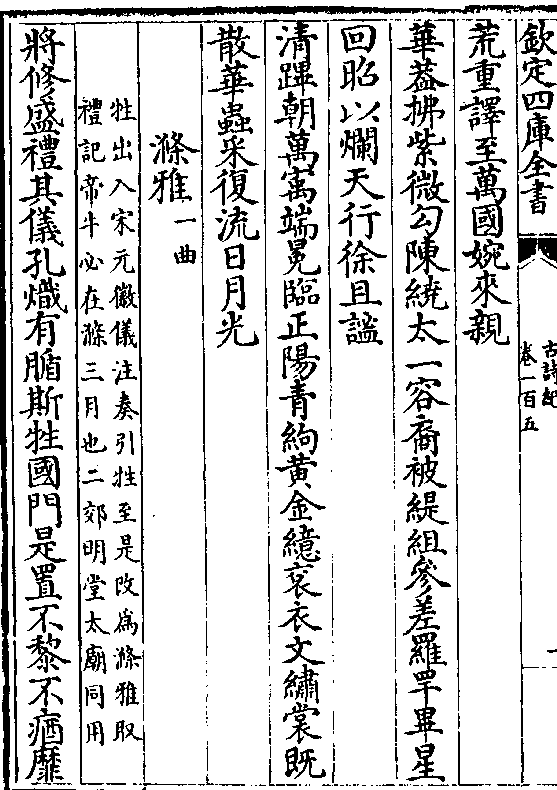 欽定四庫全書
古詩紀
卷一百五
荒重譯至萬國婉來親
華葢拂紫微勾陳繞太一容裔被緹組參差羅罕畢星
回昭以爛天行徐且謐
清蹕朝萬㝢端冕臨正陽青絇黄金繶衮衣文繡裳既
散華蟲采復流日月光
滌雅一曲
牲出入宋元徽儀注奏引牲至是改為滌雅取
禮記帝牛必在滌三月也二郊明堂太廟同用
將修盛禮其儀孔熾有腯斯牲國門是置不黎不㾕靡